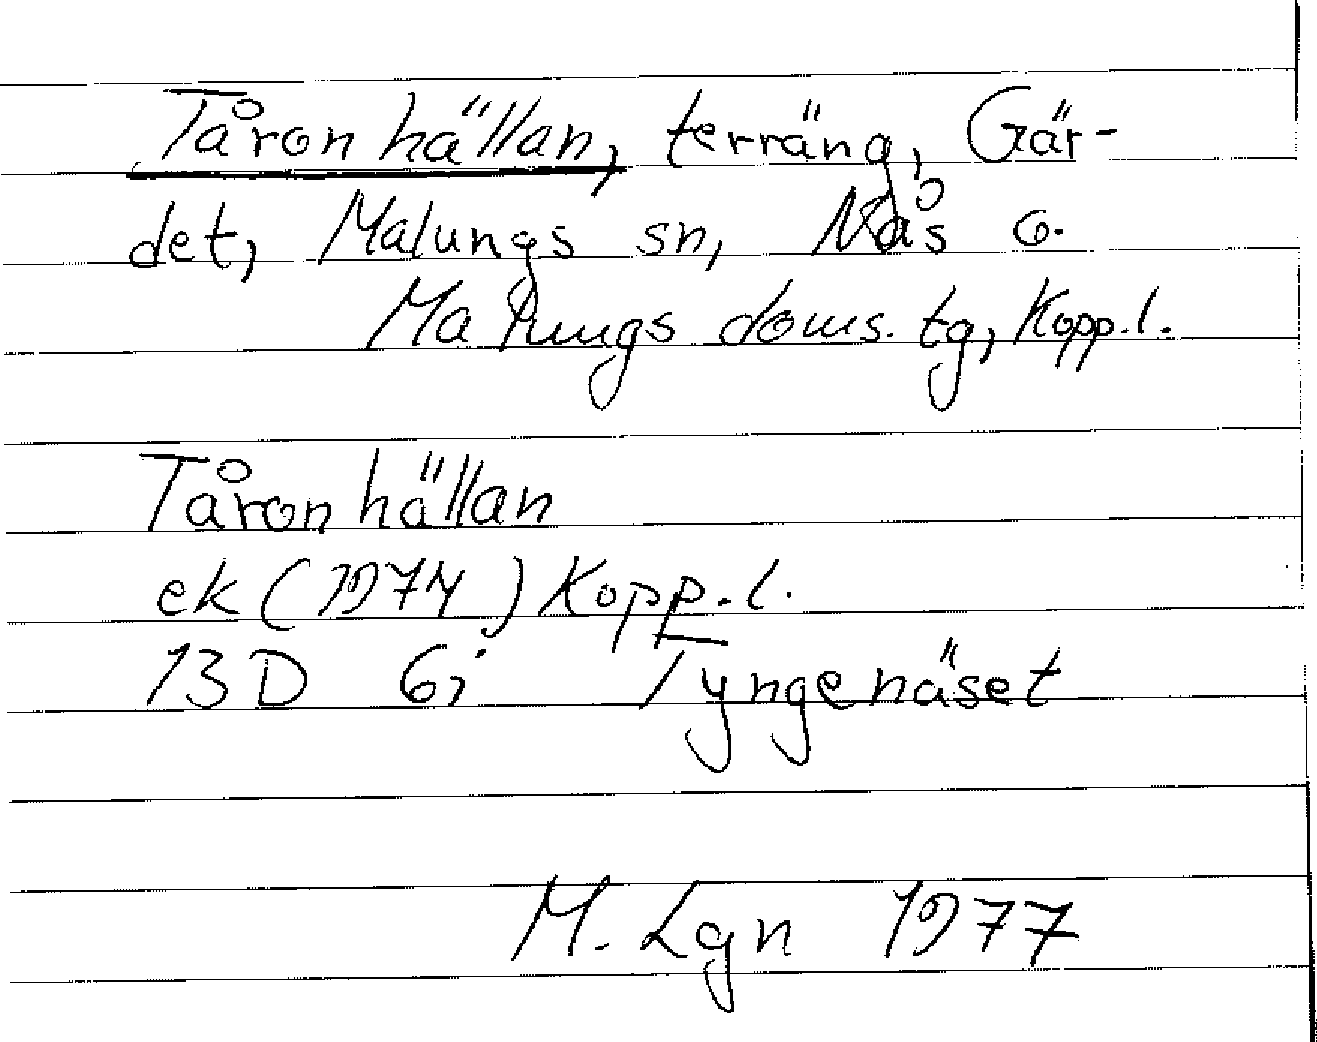 Tåronhällan, terräng, Gär-
det, Malungs sn, Nås o.
Malungs doms. tg, Kopp.l.
Tåronhällan
ek (1974) Kopp.l.
13D 6i Tyngenäset
M. Lgn 1977